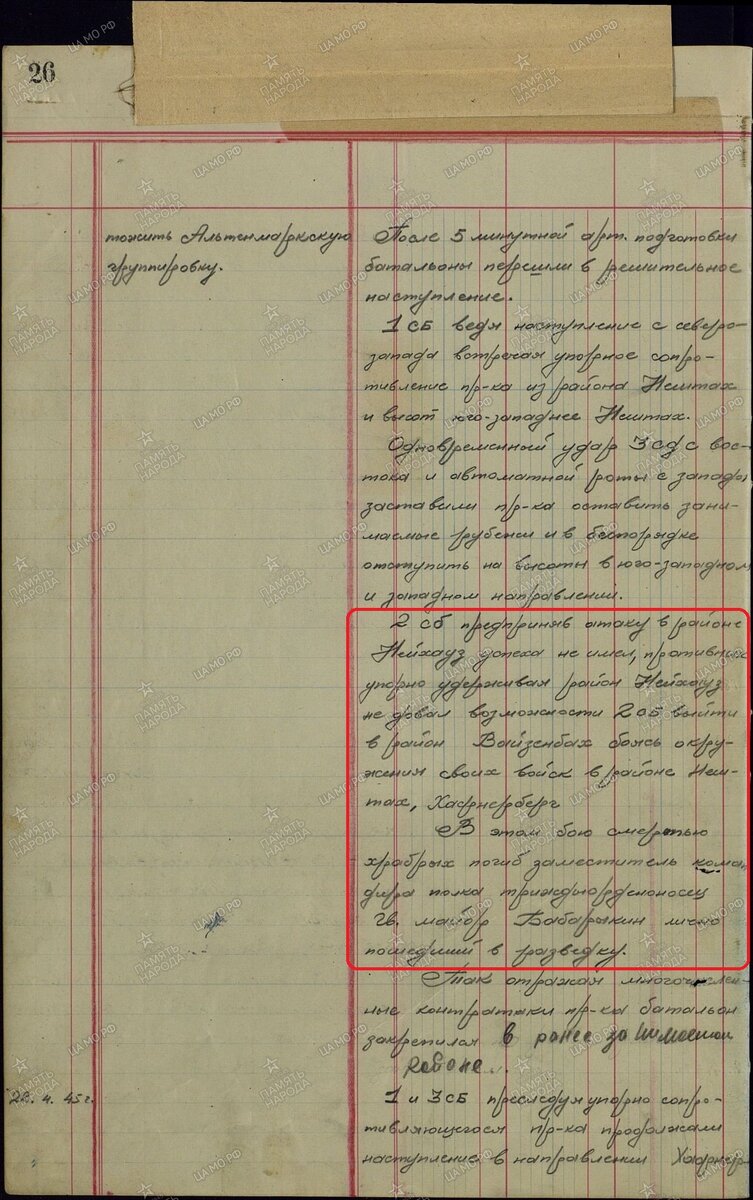 26
тожить Альтенмаркскую
группировку.
После 5 минутной арт. подготовки
батальоны перешли в решительное
наступление.
1 сб ведя наступление с северо-
запада встречая упорное сопро-
тивление пр-ка из района Нештах
и высот юго-западнее Нештах.
Одновременный удар 3 сб с вос-
тока и автоматной роты с запада
заставили пр-ка оставить зани-
маемые рубежи и в беспорядке
отступить на высоты в юго-западном
и западном направлении.
2 сб предприняв атаку в районе
Нейхауз успеха не имел, противник
упорно удерживая район Нейхауз
не довал возможности 2 сб выйти
в район Вайзенбах боясь окру-
жения своих войск в районе Неш-
тах, Хафнерберг
В этом бою смертью
храбрых погиб заместитель коман
дира полка трижды орденоносец
Гв. майор Бабарыкин лично
пошедший в разведку.
Так отражая многочислен-
ные контратаки пр-ка батальон
закрепился в ранее занимаемом
районе.
22. 4. 45 г.
1 и 3 сб преследуя упорно сопро-
тивляющегося пр-ка продолжали
наступление в направлении Хафнер-
ПАМЯТЬ НАРОДА
ЦА МО РФ